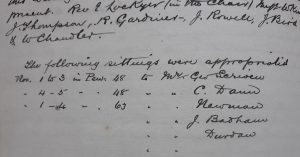 present. Rev E Lockyer (in the Chair) Messrs W.
J. Thompson, R. Gardiner, J. Rowell, J. Bird
& W Chandler.
The following sittings were appropriated
Nos. 1 to 3 in Pew. 48 to Mr Geo Scriven
" 4-5 " " 48 " " C. Dann
" 1-4 " " 63 " " Newman
" " J. Badham
" " Durdan